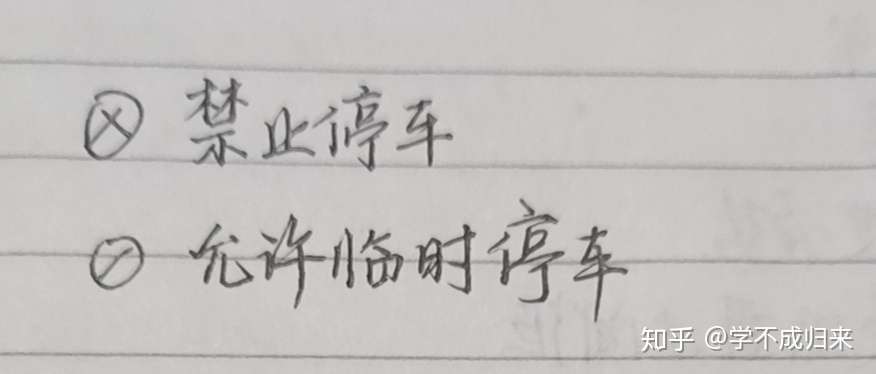 ⓧ 禁止停车
⊘ 允许临时停车
知乎 @学不成归来